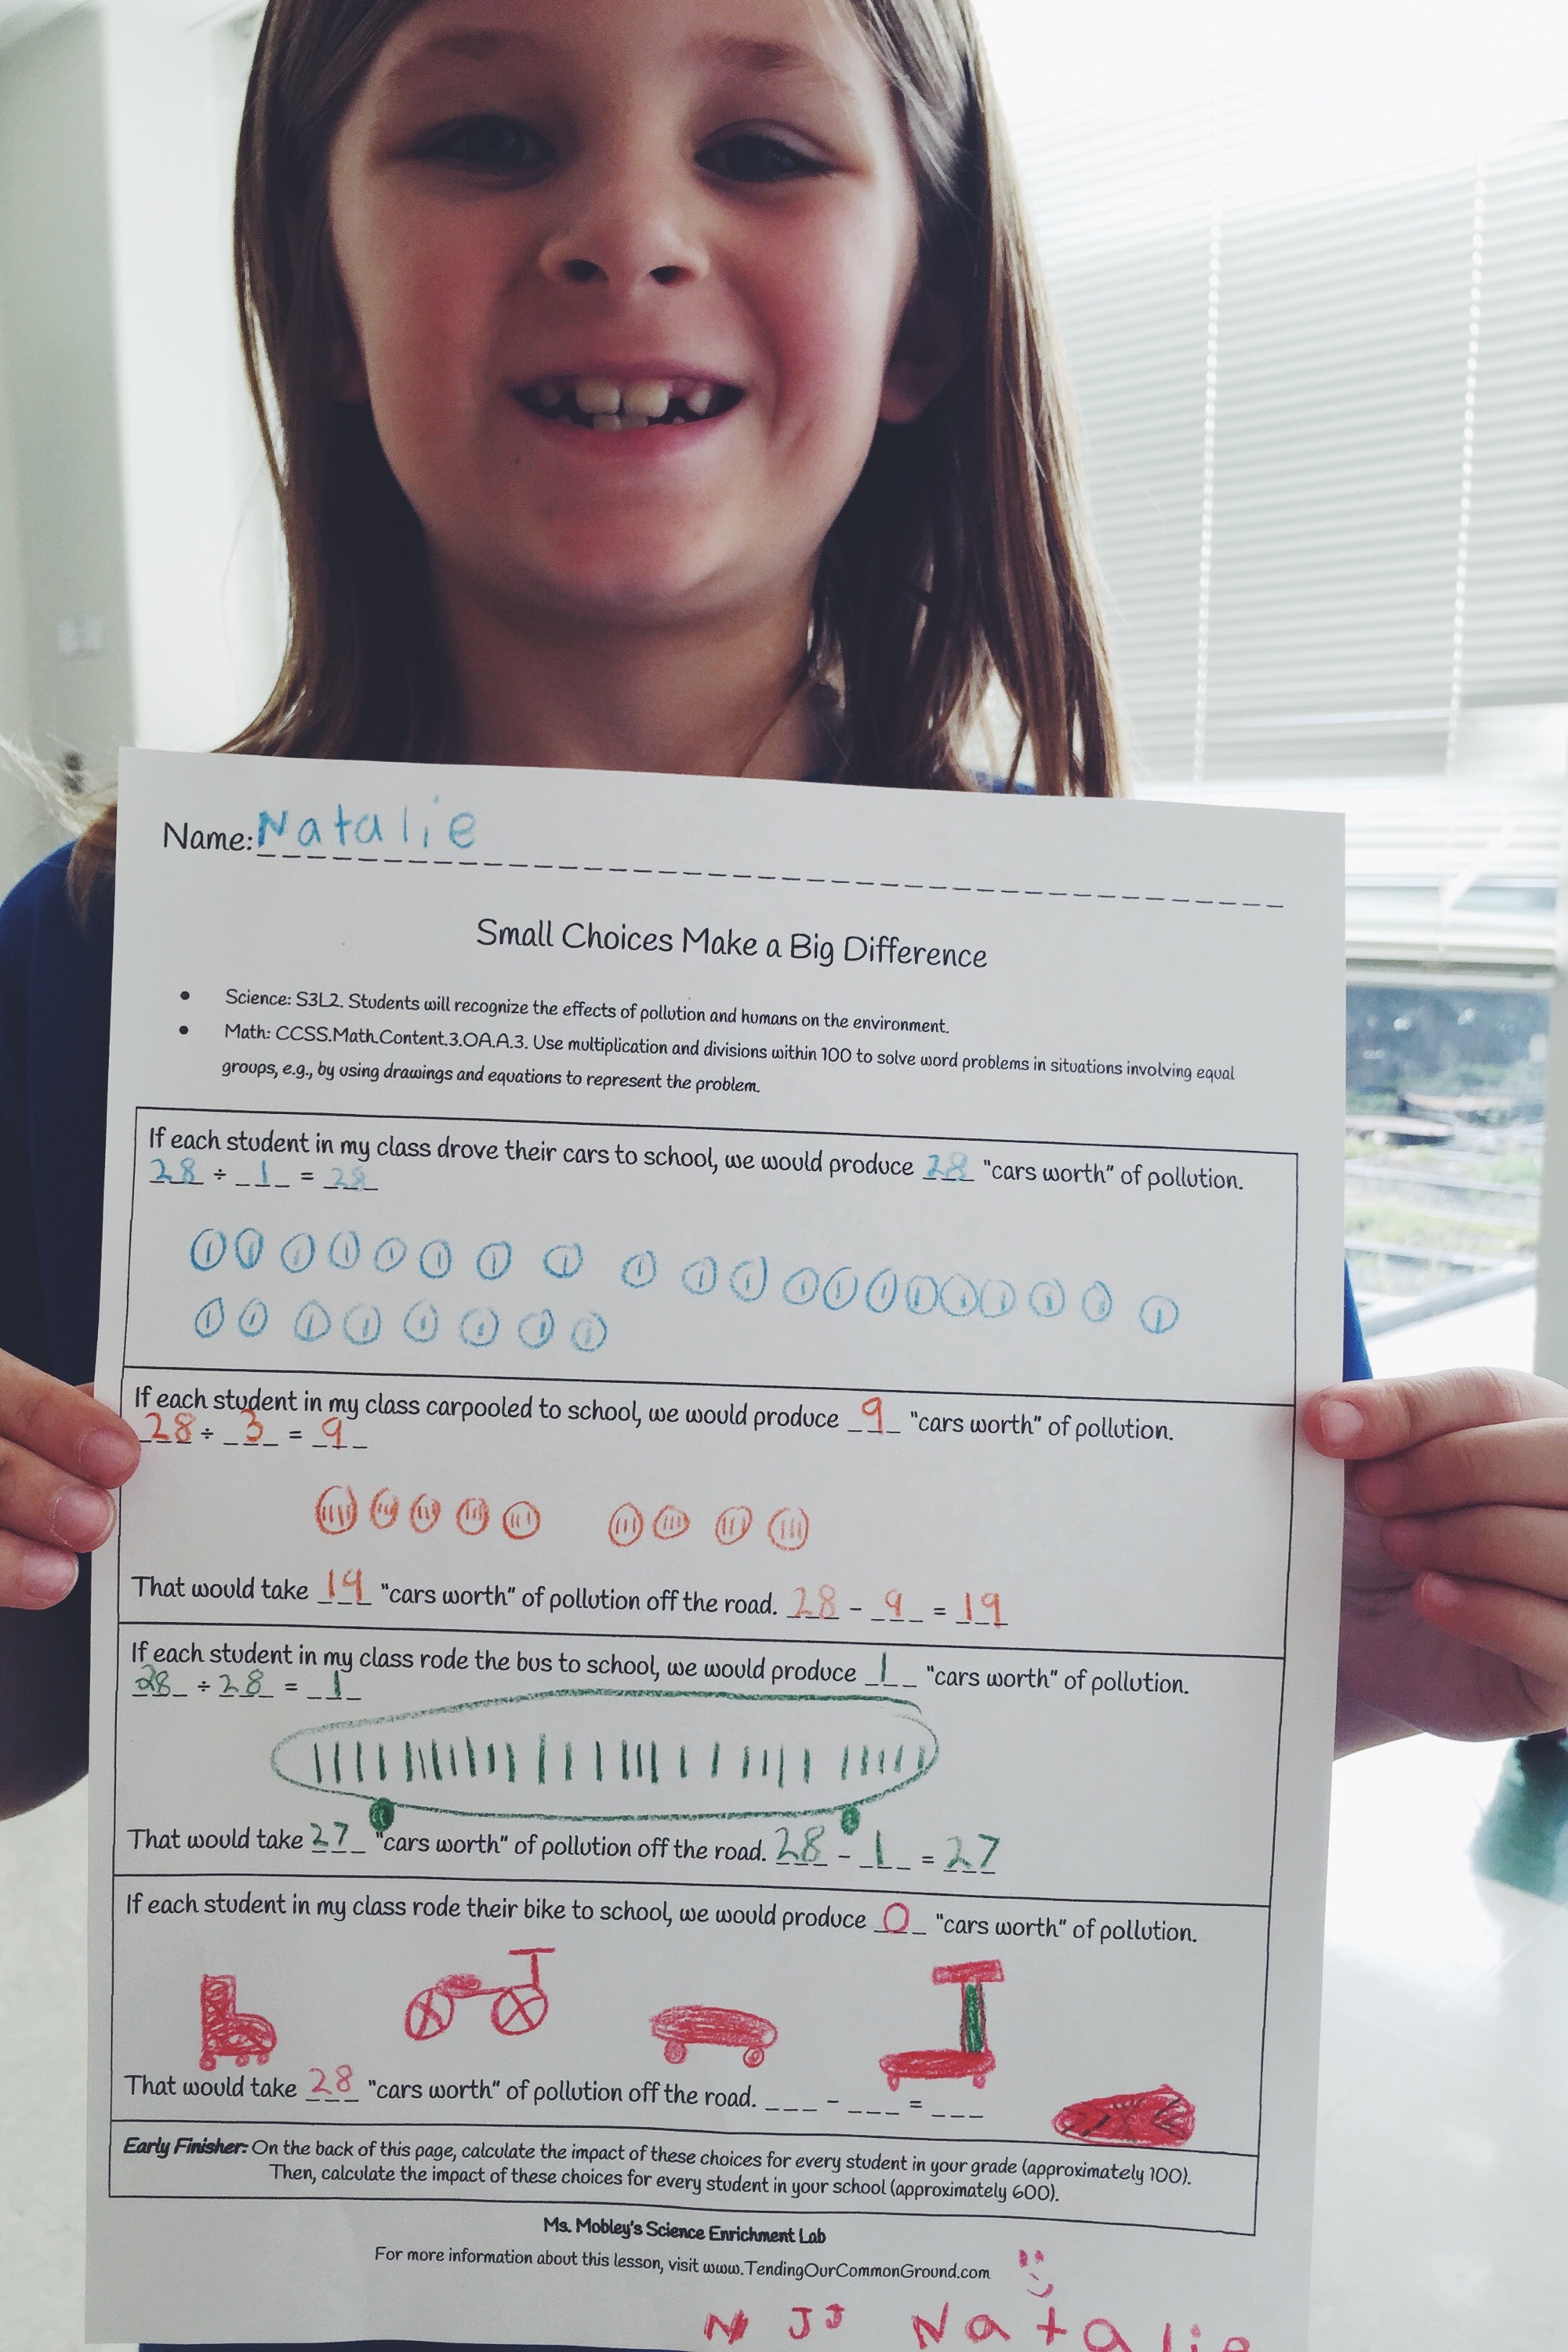 Name: Natalie
Small Choices Make a Big Difference
• Science: S3L2. Students will recognize the effects of pollution and humans on the environment.
• Math: CCSS.Math.Content.3.OA.A.3. Use multiplication and divisions within 100 to solve word problems in situations involving equal
groups, e.g., by using drawings and equations to represent the problem.
If each student in my class drove their cars to school, we would produce 28 "cars worth" of pollution.
28 ÷ 1 = 28
If each student in my class carpooled to school, we would produce 9 "cars worth" of pollution.
28 ÷ 3 = 9
That would take 19 "cars worth" of pollution off the road. 28 - 9 = 19
If each student in my class rode the bus to school, we would produce 1 "cars worth" of pollution.
28 ÷ 28 = 1
That would take 27 "cars worth" of pollution off the road. 28 - 1 = 27
If each student in my class rode their bike to school, we would produce 0 "cars worth" of pollution.
That would take 28 "cars worth" of pollution off the road. ___ - ___ = ___
Early Finisher: On the back of this page, calculate the impact of these choices for every student in your grade (approximately 100).
Then, calculate the impact of these choices for every student in your school (approximately 600).
Ms. Mobley's Science Enrichment Lab
For more information about this lesson, visit www.TendingOurCommonGround.com
N JJ Natalie